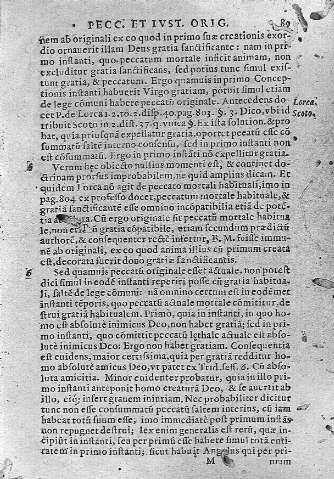 PECC. ET IVST. ORIG. 89
nem ab originali ex eo quod in primo suæ creationis exor-
dio ornauerit illam Deus gratia sanctificante: nam in pri-
mo instanti, quo peccatum mortale inficit animam, non
excluditur gratia sanctificans, sed potius tunc simul exis-
tunt gratia, & peccatum. Ergo quamuis in primo Concep-
tionis instanti habuerit Virgo gratiam, potuit simul etiam
de lege cõmuni habere peccatũ originale. Antecedens do-
cet P. de Lorca 1. 2. to. 2. disp. 40. pag. 891. §. 37. Dico, vbi id
tribuit Scoto in 2. dist. 37. q. vnica §. Ex ista solution. & pro-
bat, quia priusquã expellatur gratia, oportet peccatũ esse cõ
summatũ saltẽ interno consensu, sed in primo instanti non
est cõsummatũ. Ergo in primo instanti nõ expellit gratiã.
Lorca.
Scoto.
5 Verum hæc obiectio nullius momenti est, & continet do-
ctrinam prorsus improbabilem, ne quid amplius dicam. Et
quidem Lorca nõ agit de peccato mortali habituali, imo in
pag. 804. ex professo docet, peccatum mortale habituale, &
gratiã sanctificantẽ esse omnino incõpatibilia etiã de potẽ-
tia Cũ ergo originale sit peccatũ mortale habitua
le, non est cum gratia cõpatibile, etiam secundum prædictũ
authorẽ, & consequenter rectè infertur, B. M. fuisse immu-
nẽ ab originali, ex eo quod anima illius cũ primum creata
est, decorata fuerit dono gratiæ sanctificantis.
6 Sed quamuis peccatũ originale esset actuale, non potest
dici simul in eodẽ instanti reperiri posse cũ gratia habitua-
li, saltẽ de lege cõmuni: nã omnino certum est in eodem
instanti tẽporis, quo peccatũ actuale mortale cõmititur, de-
strui gratiã habitualem. Primò, quia in instanti, in quo ho
mo est absolutè inimicus Deo, non habet gratiã; sed in pri-
mo instanti, quo cõmittit peccatũ lethale actuale est abso-
lutè inimicus Deo: Ergo non habet gratiam. Consequentia
est euidens, maior certissima, quia per gratiã redditur ho-
mo absolutè amicus Deo, vt patet ex Trid. sess. 6. Cũ abso-
luta amicitia. Minor euidenter probatur, quia in illo pri-
mo instanti anteponit homo creaturã Deo, & se auertit ab
illo, eiq; infert grauem iniuriam. Nec probabiliter dicitur
tunc non esse consummatũ peccatũ saltem interius, cũ iam
habeat totũ suum esse, imo immediatè post primum instãs
non repugnet destrui; lex enim generalis est rerũ, quæ in-
cipiũt in instanti, seu per primũ esse habere simul totã enti
tatem in primo instanti; sicut habuit Angelus qui per pri-
M mum